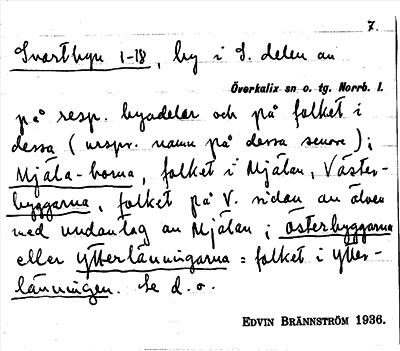 7.
Svartbyn 1-18, by i S. delen av
Överkalix sn o. tg. Norrb. l.
på resp. byadelar och på folket i
dessa (urspr. namn på dessa senare);
Mjäla-borna, folket i Mjälan, Väster-
byggarna, folket på V. sidan av älven
med undantag av Mjälan; österbyggarna
eller ytterlänningarna = folket i ytter-
länningen. Se d.o.
EDVIN BRÄNNSTRÖM 1936.